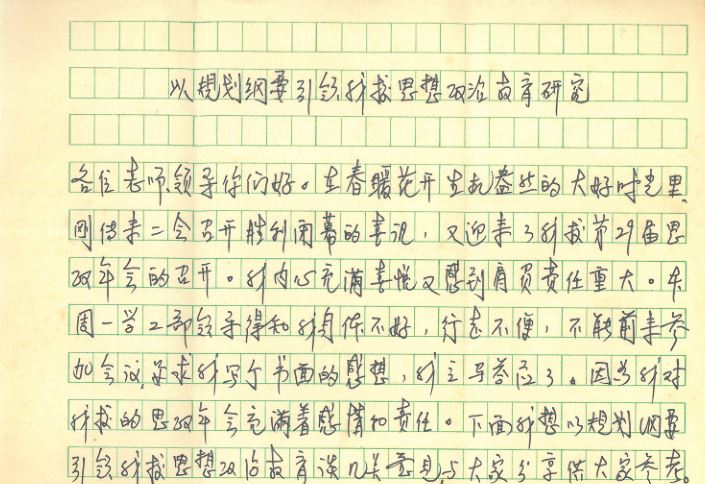 以规划纲要引领我校思想政治教育研究
各位老师领导你们好。在春暖花开生机盎然的大好时光里,
刚传来二会召开胜利闭幕的喜讯,又迎来了我校第29届思
政年会的召开。我内心充满喜悦又感到肩负责任重大。本
周一学工部领导得知我身体不好,行走不便,不能前来参
加会议,要求我写个书面的感想,我立马答应了。因为我对
我校的思政年会充满着感情和责任。下面我想以规划纲要
引领我校思想政治教育谈几点意见与大家分享供大家参考。